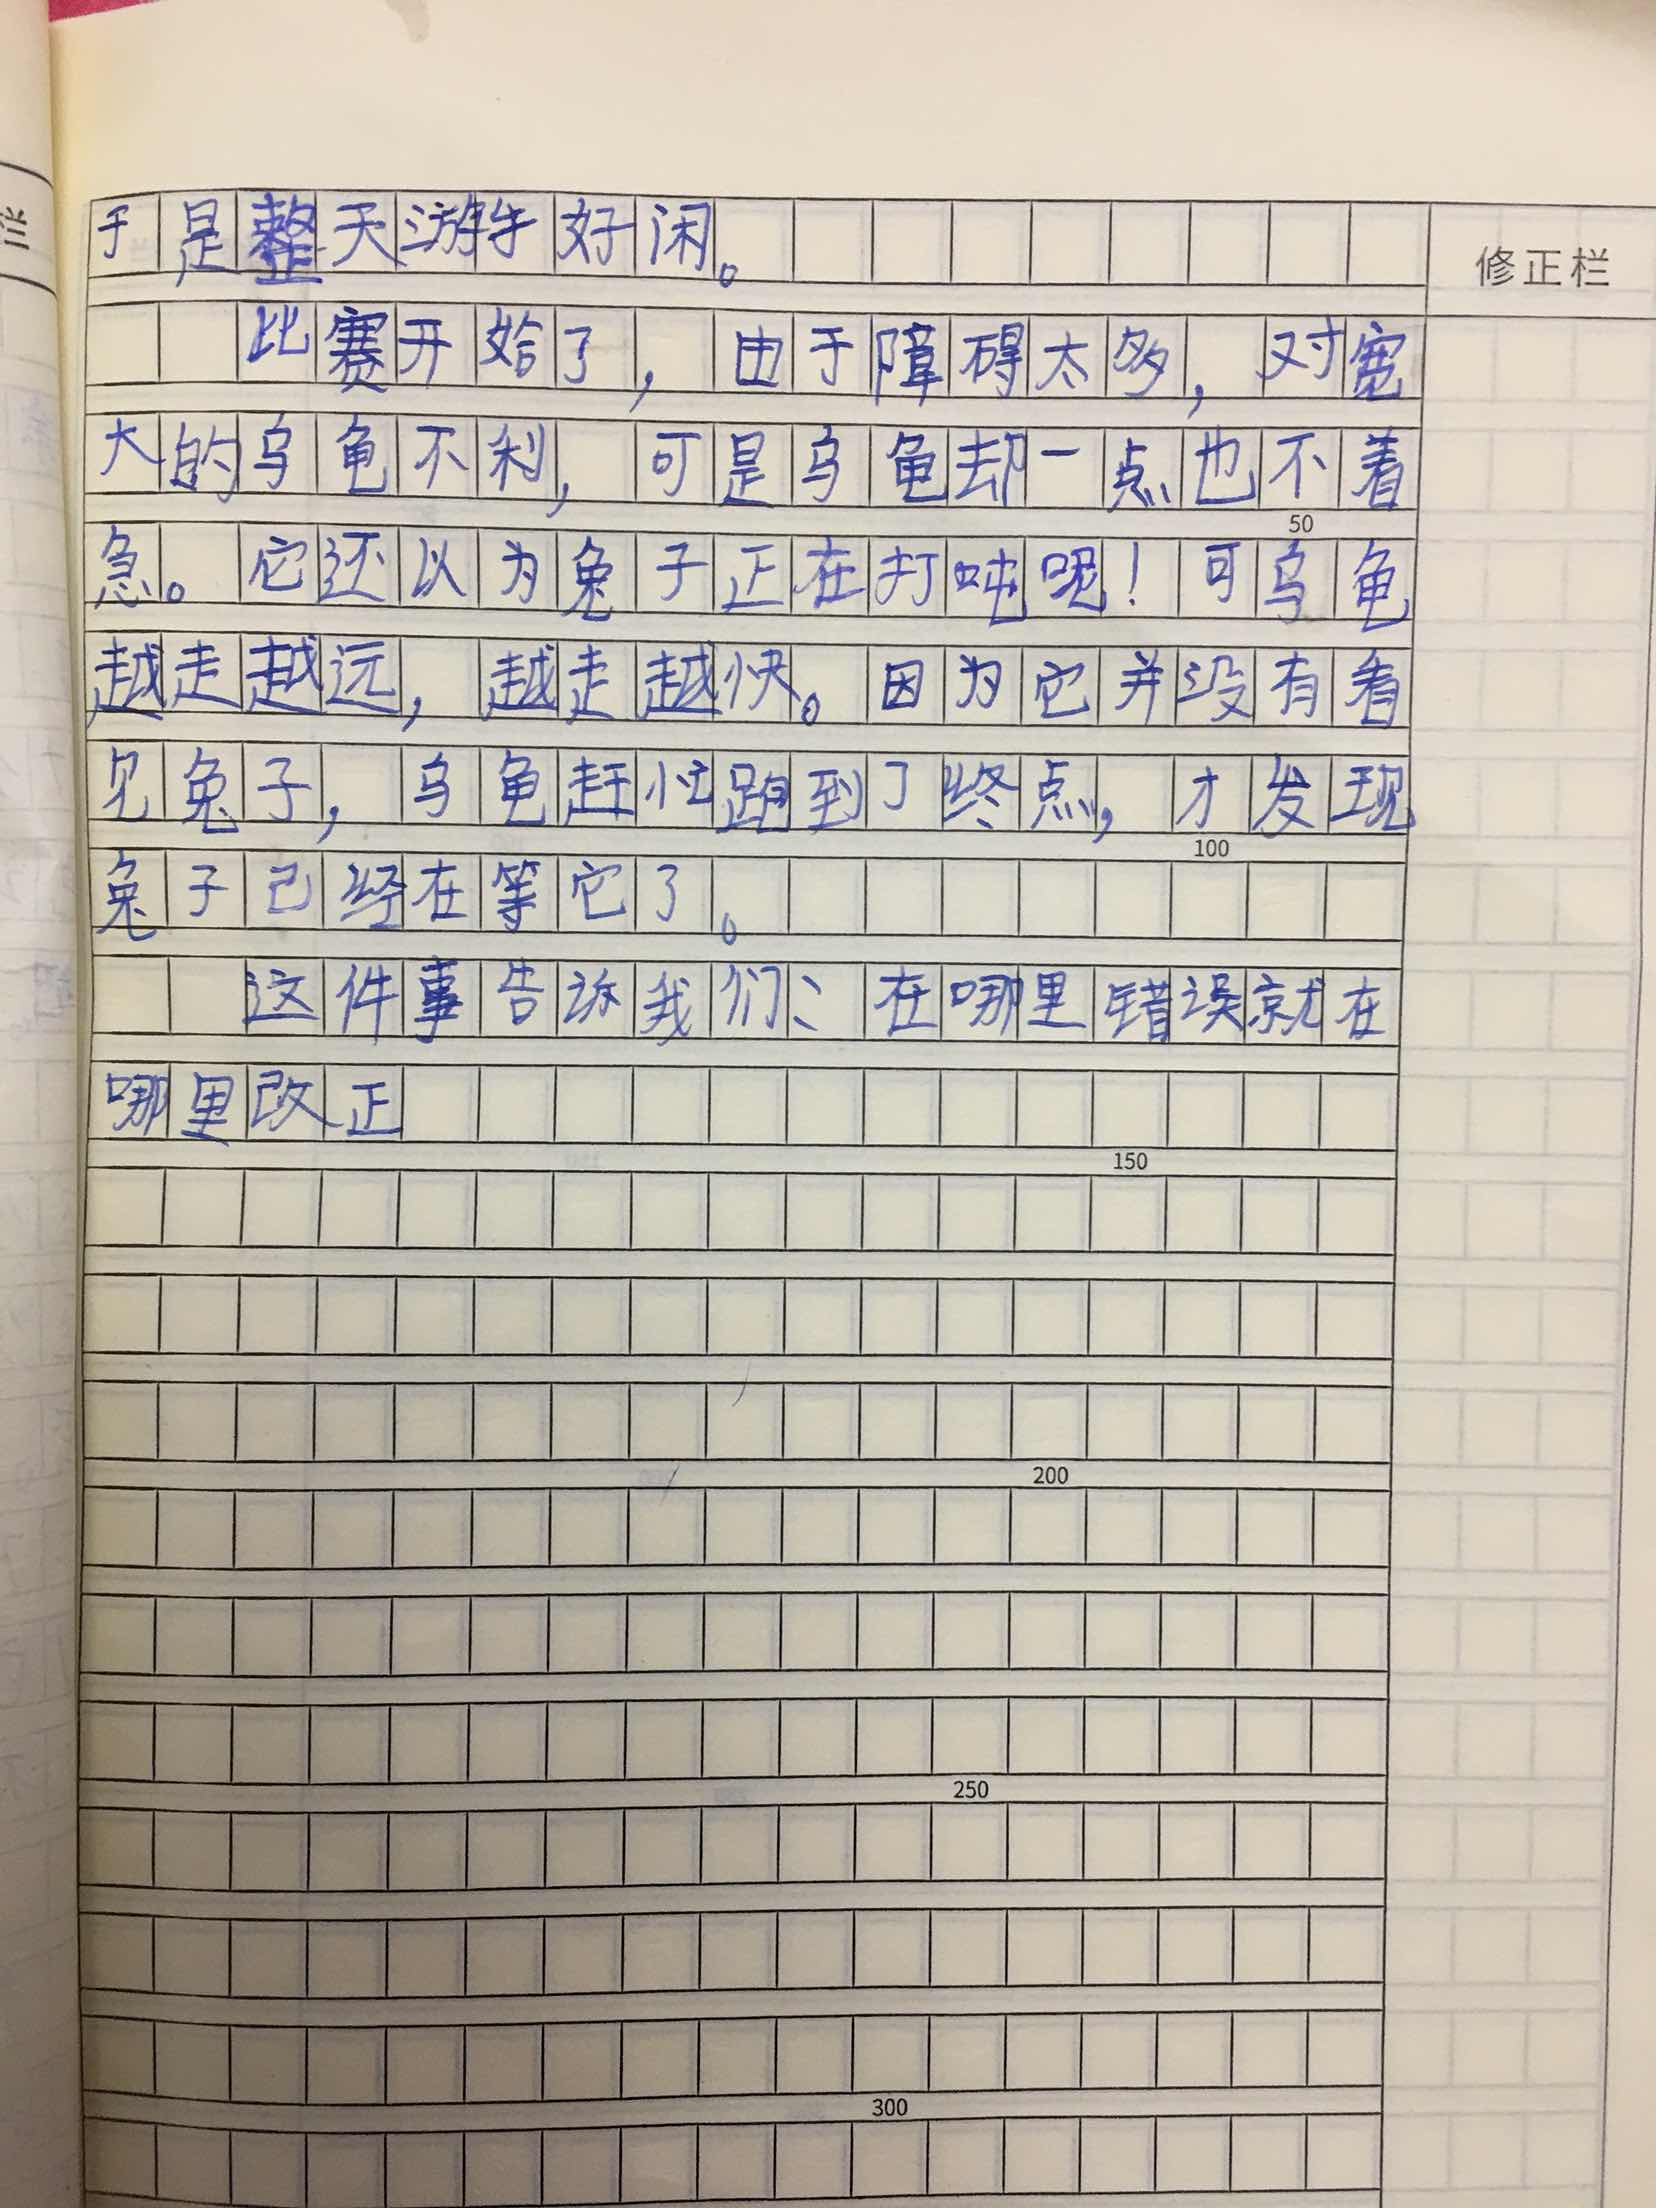 于是整天游手好闲。
修正栏
比赛开始了，由于障碍太多，对宽
大的乌龟不利，可是乌龟却一点也不着
50
急。它还以为兔子正在打吨呢！可乌龟
越走越远，越走越快。因为它并没有看
见兔子，乌龟赶忙跑到了终点，才发现
100
兔子己经在等它了。
这件事告诉我们、在哪里错误就在
哪里改正
150
200
250
300